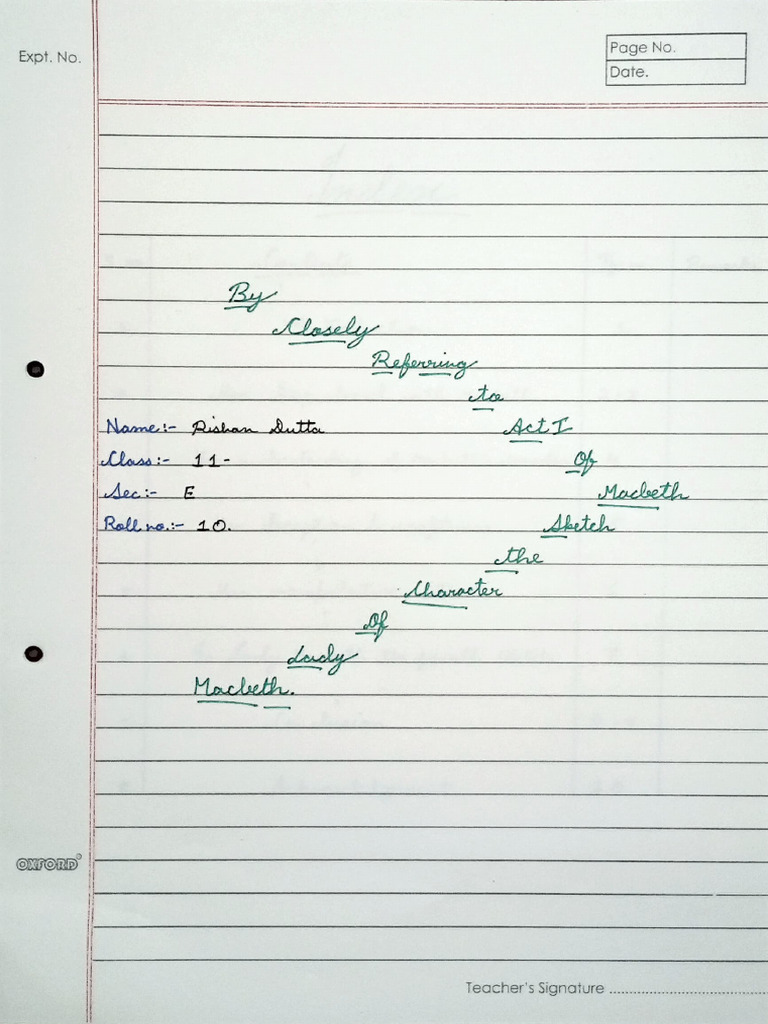 Expt. No.
Page No.
Date.
By
Closely
Referring
to
Name:- Rishan Dutta
Act I
Class:- 11-
Of
Sec:- E
Macbeth
Roll no.:- 10.
Sketch
the
Character
Of
Lady
Macbeth.
OXFORD
Teacher's Signature